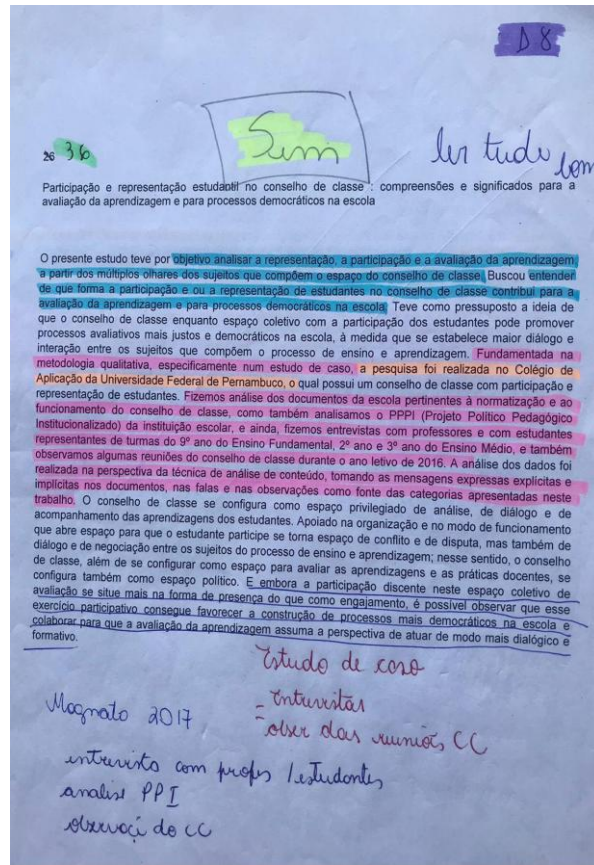 D 8
Sim
ler tudo bem
26 36
Participação e representação estudantil no conselho de classe : compreensões e significados para a
avaliação da aprendizagem e para processos democráticos na escola
O presente estudo teve por objetivo analisar a representação, a participação e a avaliação da aprendizagem,
a partir dos múltiplos olhares dos sujeitos que compõem o espaço do conselho de classe. Buscou entender
de que forma a participação e ou a representação de estudantes no conselho de classe contribui para a
avaliação da aprendizagem e para processos democráticos na escola. Teve como pressuposto a ideia de
que o conselho de classe enquanto espaço coletivo com a participação dos estudantes pode promover
processos avaliativos mais justos e democráticos na escola, à medida que se estabelece maior diálogo e
interação entre os sujeitos que compõem o processo de ensino e aprendizagem. Fundamentada na
metodologia qualitativa, especificamente num estudo de caso, a pesquisa foi realizada no Colégio de
Aplicação da Universidade Federal de Pernambuco, o qual possui um conselho de classe com participação e
representação de estudantes. Fizemos análise dos documentos da escola pertinentes à normatização e ao
funcionamento do conselho de classe, como também analisamos o PPPI (Projeto Político Pedagógico
Institucionalizado) da instituição escolar, e ainda, fizemos entrevistas com professores e com estudantes
representantes de turmas do 9º ano do Ensino Fundamental, 2º ano e 3º ano do Ensino Médio, e também
observamos algumas reuniões do conselho de classe durante o ano letivo de 2016. A análise dos dados foi
realizada na perspectiva da técnica de análise de conteúdo, tomando as mensagens expressas explícitas e
implícitas nos documentos, nas falas e nas observações como fonte das categorias apresentadas neste
trabalho. O conselho de classe se configura como espaço privilegiado de análise, de diálogo e de
acompanhamento das aprendizagens dos estudantes. Apoiado na organização e no modo de funcionamento
que abre espaço para que o estudante participe se torna espaço de conflito e de disputa, mas também de
diálogo e de negociação entre os sujeitos do processo de ensino e aprendizagem; nesse sentido, o conselho
de classe, além de se configurar como espaço para avaliar as aprendizagens e as práticas docentes, se
configura também como espaço político. E embora a participação discente neste espaço coletivo de
avaliação se situe mais na forma de presença do que como engajamento, é possível observar que esse
exercício participativo consegue favorecer a construção de processos mais democráticos na escola e
colaborar para que a avaliação da aprendizagem assuma a perspectiva de atuar de modo mais dialógico e
formativo.
Estudo de caso
- Entrevistas
- obser das reuniões CC
2017
entrevista com profes / estudantes
analise PPI
do CC